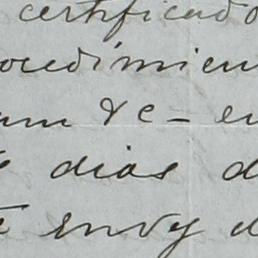 certificado
ocedimien
um &c - en
dias d
envy d